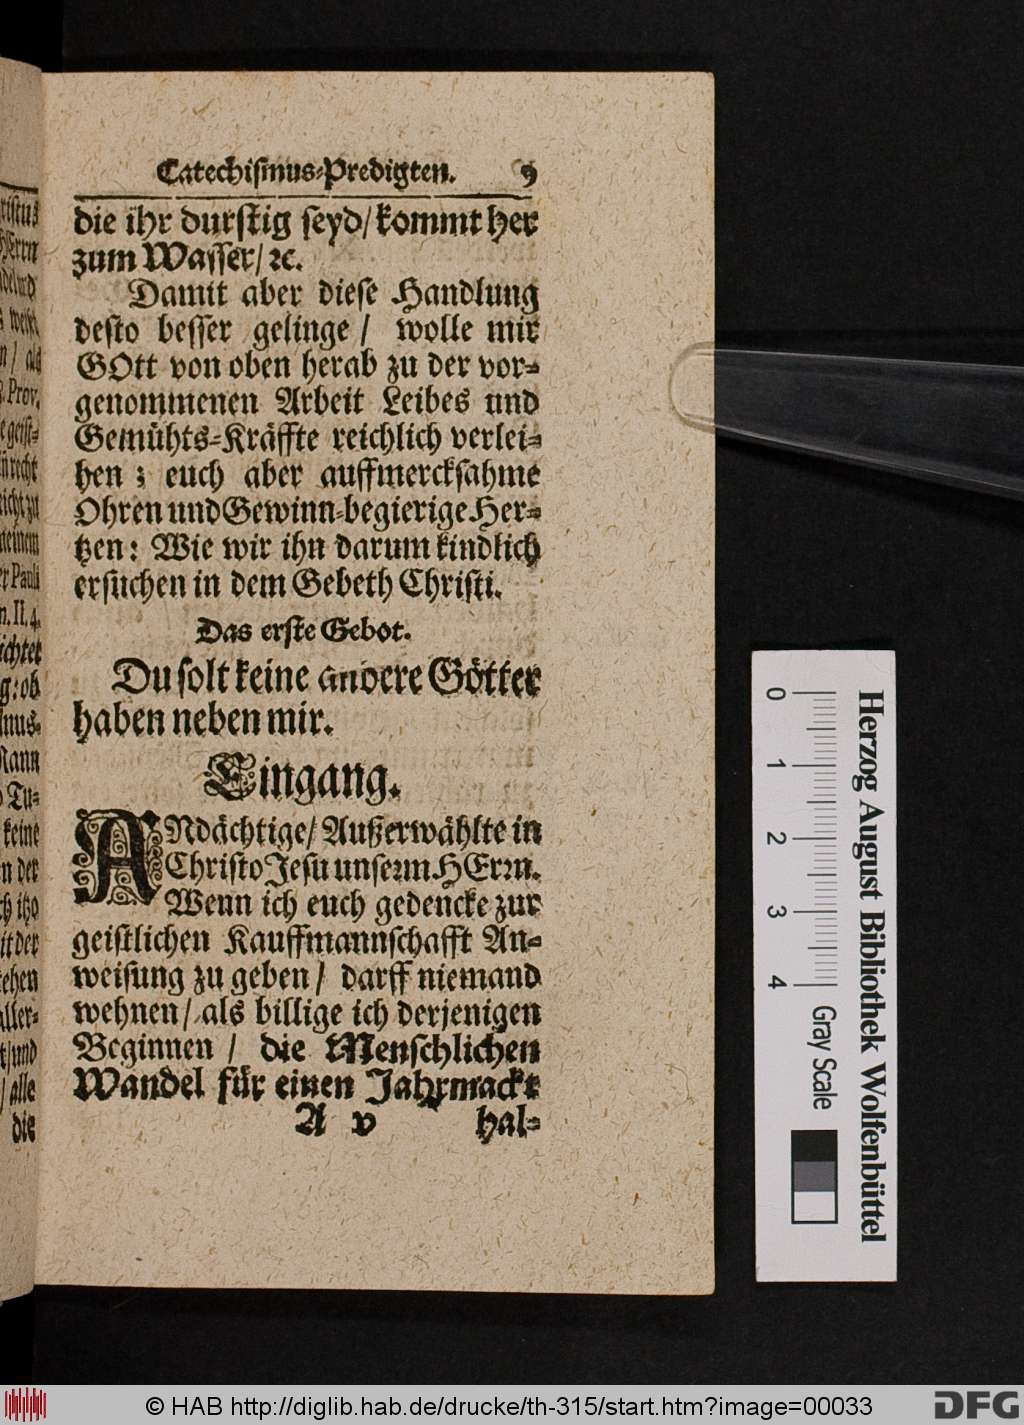 Catechismus-Predigten. 9
die ihr durstig seyd/ kommt her
zum Wasser/ ꝛc.
Damit aber diese Handlung
desto besser gelinge / wolle mir
GOtt von oben herab zu der vor-
genommenen Arbeit Leibes und
Gemühts-Kräffte reichlich verlei-
hen ; euch aber auffmercksahme
Ohren und Gewinn-begierige Her-
tzen: Wie wir ihn darum kindlich
ersuchen in dem Gebeth Christi.
Das erste Gebot.
Du solt keine andere Götter
haben neben mir.
Eingang.
ANdächtige/ Außerwählte in
Christo Jesu unserm HErrn.
Wenn ich euch gedencke zur
geistlichen Kauffmannschafft An-
weisung zu geben / darff niemand
wehnen / als billige ich derjenigen
Beginnen / die Menschlichen
Wandel für einen Jahrmackt
A v hal-
0 1 2 3 4 Gray Scale
Herzog August Bibliothek Wolfenbüttel
© HAB http://diglib.hab.de/drucke/th-315/start.htm?image=00033
DFG